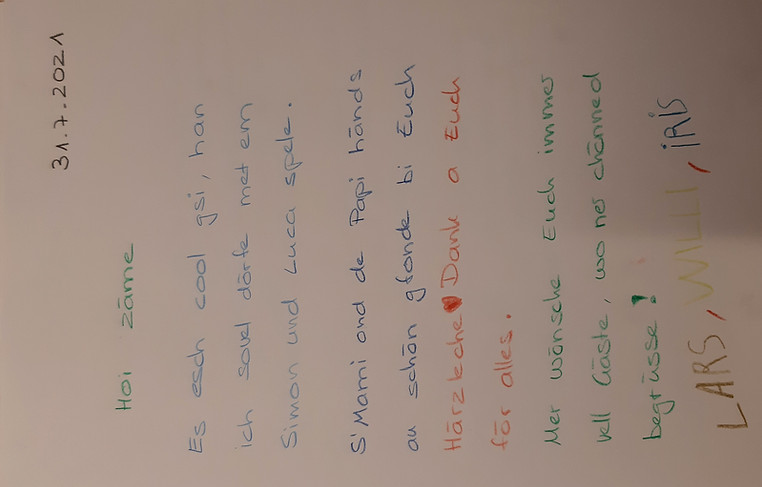 31.7.2021
Hoi zäme
Es esch cool gsi, han
ich sovel dörfe met em
Simon und Luca spele.
S'Mami ond de Papi hands
au schön gfonde bi Euch
Härzleche Dank a Euch
för alles.
Mer wönsche Euch immer
vell Gäste, wo ner chönned
begrüsse!
LARS, WILLI, iRiS